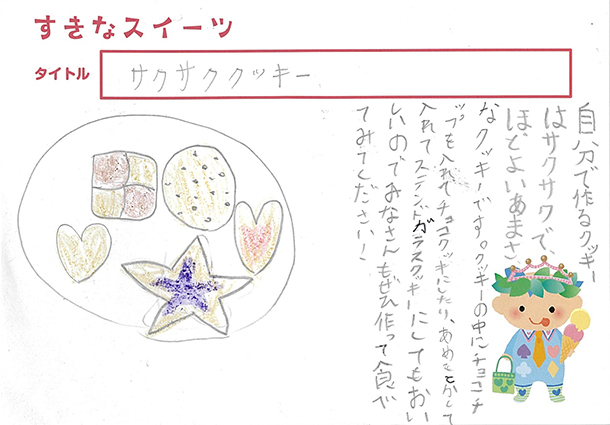 すきなスイーツ
タイトル
サクサククッキー
自分で作るクッキー
はサクサクで、
ほどよいあまさ
なクッキーです。クッキーの中にチョコチ
ップを入れてチョコクッキーにしたり、あめをとかして
入れてステンドガラスクッキーにしてもおい
しいのでみなさんもぜひ作って食べ
てみてください！